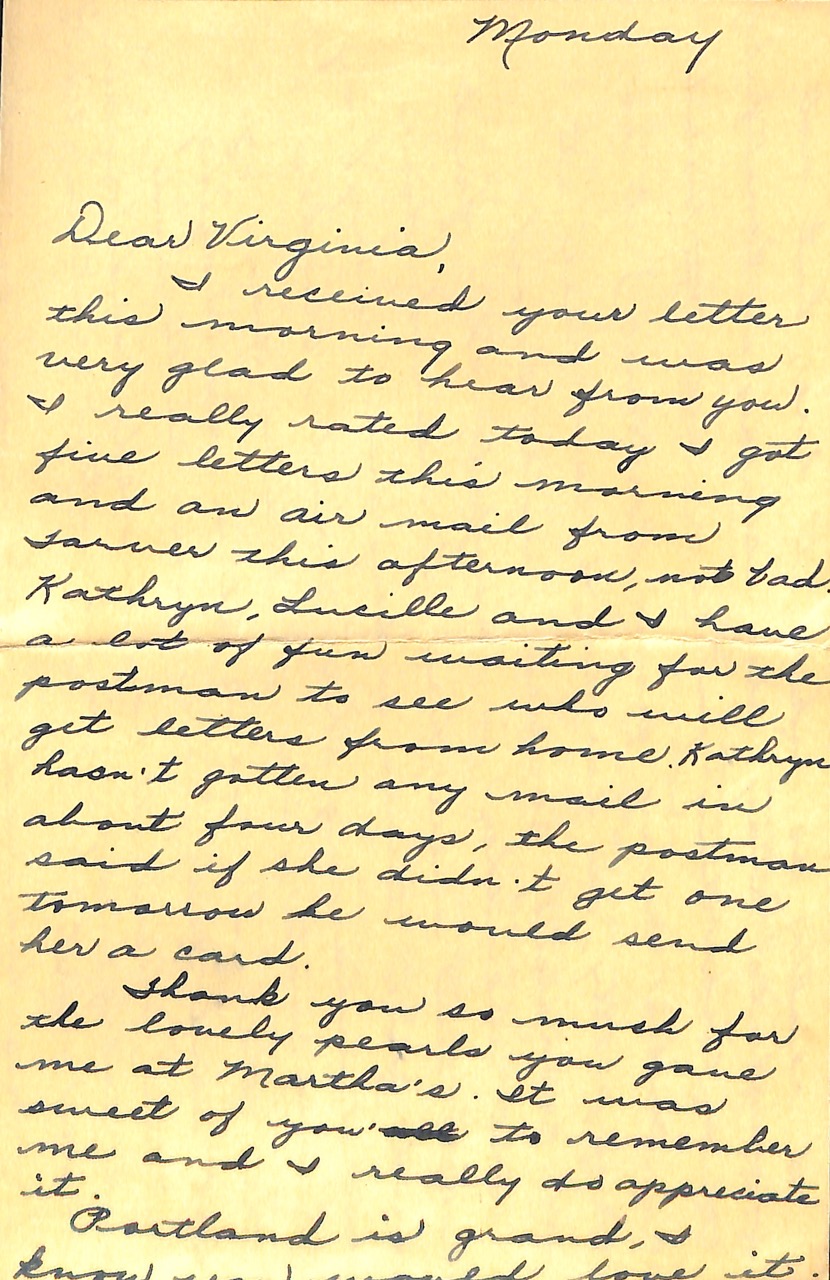 Monday
Dear Virginia,
I received your letter
this morning and was
very glad to hear from you.
I really rated today I got
five letters this morning
and an air mail from
Tarver this afternoon, not bad.
Kathryn, Lucille and I have
a lot of fun waiting for the
postman to see who will
get letters from home. Kathryn
hasn't gotten any mail in
about four days, the postman
said if she didn't get one
tomorrow he would send
her a card.
Thank you so much for
the lovely pearls you gave
me at Martha's. It was
sweet of you' all to remember
me and I really do appreciate
it.
Portland is grand, I
know you would love it.